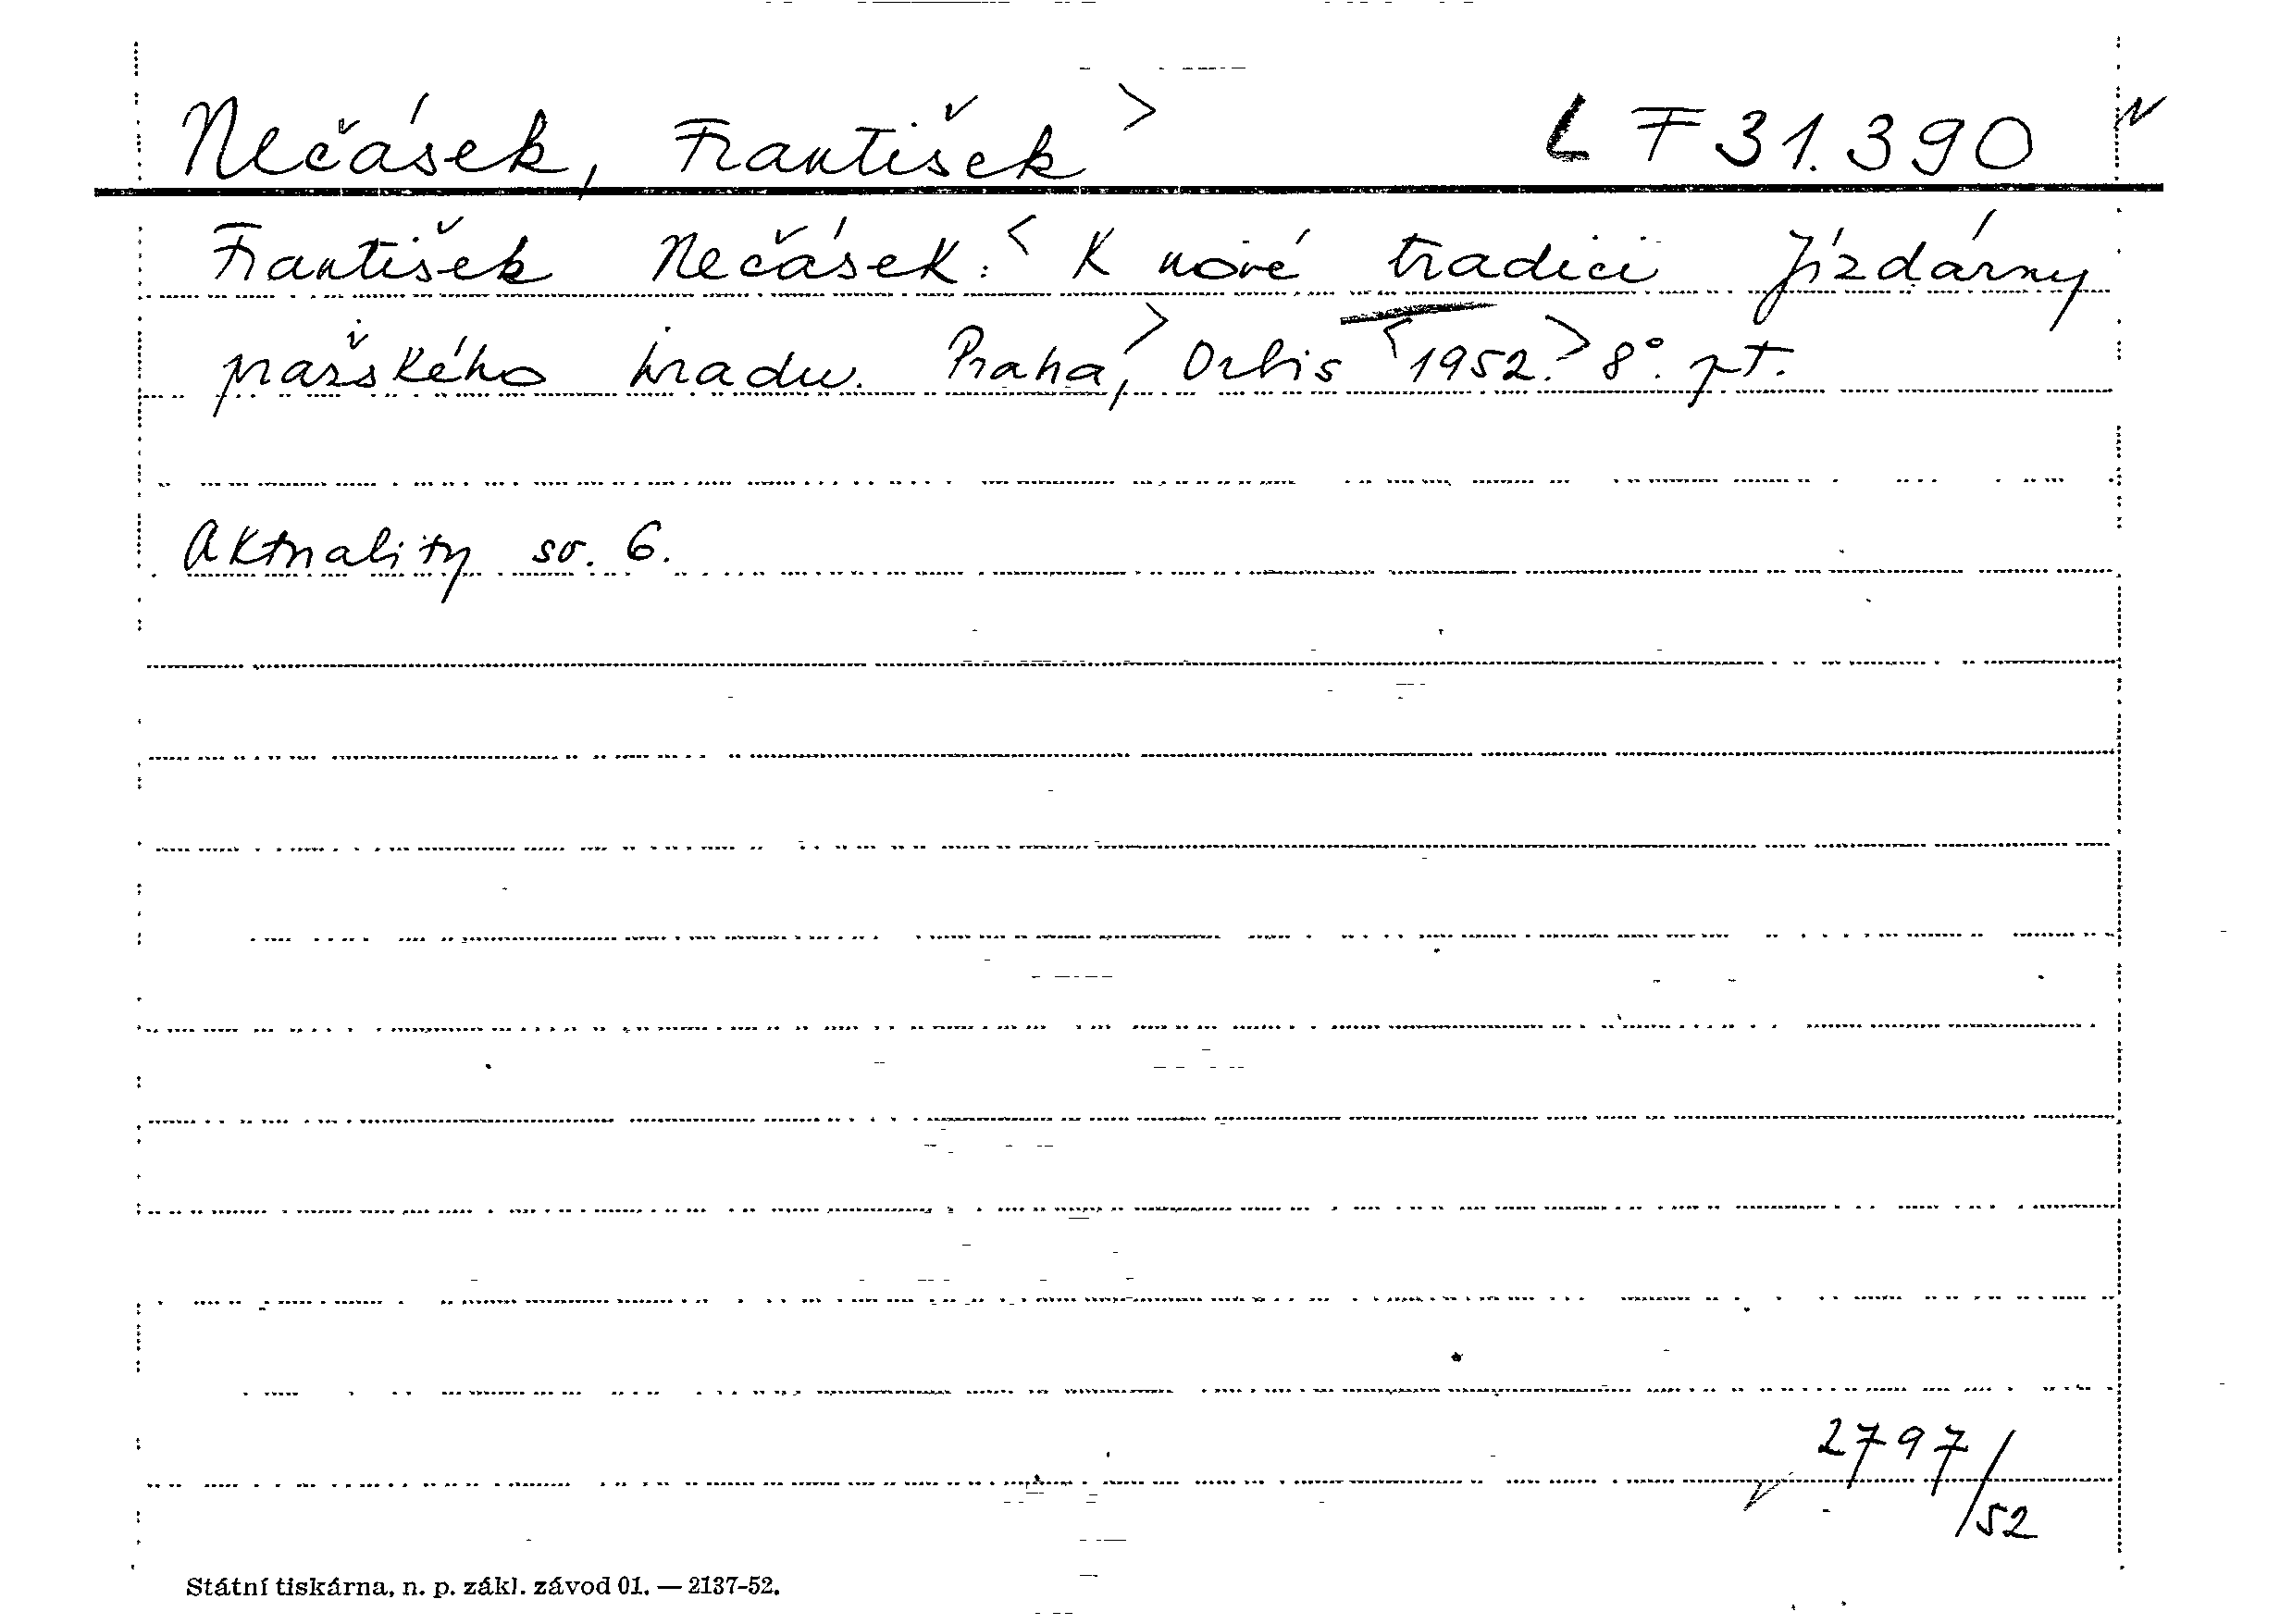 Nečásek, František> L F 31.390
František Nečásek: <K nové tradici Jízdárny
pražského hradu. Praha,> Orbis <1952.> 8°. pt.
Aktuality sv. 6.
2797/52
Státní tiskárna, n. p. zákl. závod 01. — 2137-52.